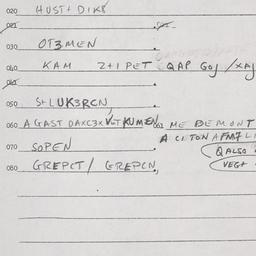 020 HUST+ DIK8
021
030 OT3MEN
040 KAM 2+1 PET QAP GOJ /XAJ
041
050 S+LUK3RCN,
060 AGAST OAXC3X V+T KUMEN, 061 ME BEMONT
A CITON AFM7 LI
070 SOPEN
QALSO
080 GREPCT/ GREPCN,
VEG+